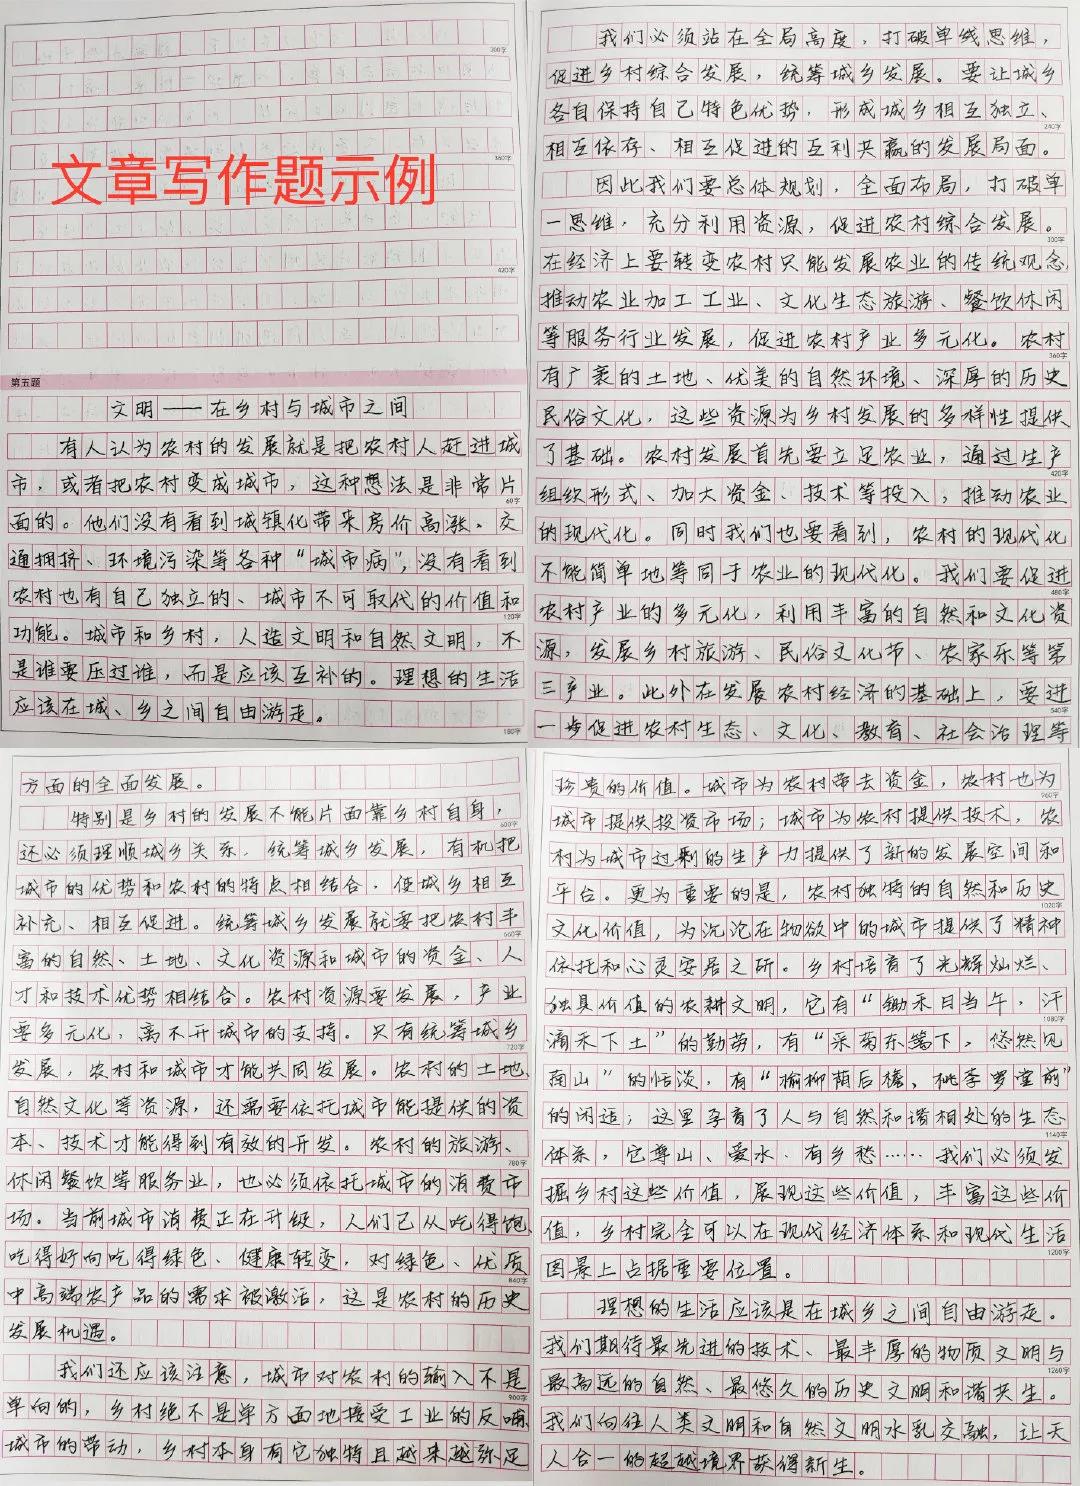 300字
360字
文章写作题示例
420字
第五题
文明——在乡村与城市之间
有人认为农村的发展就是把农村人赶进城
市，或者把农村变成城市，这种想法是非常片
60字
面的。他们没有看到城镇化带来房价高涨、交
通拥挤、环境污染等各种“城市病”，没有看到
农村也有自己独立的、城市不可取代的价值和
120字
功能。城市和乡村，人造文明和自然文明，不
是谁要压过谁，而是应该互补的。理想的生活
应该在城、乡之间自由游走。
180字
我们必须站在全局高度，打破单线思维，
促进乡村综合发展，统筹城乡发展。要让城乡
各自保持自己特色优势，形成城乡相互独立、
240字
相互依存、相互促进的互利共赢的发展局面。
因此我们要总体规划，全面布局，打破单
一思维，充分利用资源，促进农村综合发展。
300字
在经济上要转变农村只能发展农业的传统观念
推动农业加工工业、文化生态旅游、餐饮休闲
等服务行业发展，促进农村产业多元化。农村
360字
有广袤的土地、优美的自然环境、深厚的历史
民俗文化，这些资源为乡村发展的多样性提供
了基础。农村发展首先要立足农业，通过生产
420字
组织形式、加大资金、技术等投入；推动农业
的现代化。同时我们也要看到，农村的现代化
不能简单地等同于农业的现代化。我们要促进
480字
农村产业的多元化，利用丰富的自然和文化资
源，发展乡村旅游、民俗文化节、农家乐等第
三产业。此外在发展农村经济的基础上，要进
540字
一步促进农村生态、文化、教育、社会治理等
方面的全面发展。
特别是乡村的发展不能片面靠乡村自身，
600字
还必须理顺城乡关系，统筹城乡发展，有机把
城市的优势和农村的特点相结合，使城乡相互
补充、相互促进。统筹城乡发展就要把农村丰
660字
富的自然、土地、文化资源和城市的资金、人
才和技术优势相结合。农村资源要发展，产业
要多元化，离不开城市的支持。只有统筹城乡
720字
发展，农村和城市才能共同发展。农村的土地、
自然文化等资源，还需要依托城市能提供的资
本、技术才能得到有效的开发。农村的旅游、
780字
休闲餐饮等服务业，也必须依托城市的消费市
场。当前城市消费正在升级，人们已从吃得饱、
吃得好向吃得绿色、健康转变，对绿色、优质
840字
中高端农产品的需求被激活，这是农村的历史
发展机遇。
我们还应该注意，城市对农村的输入不是
900字
单向的，乡村绝不是单方面地接受工业的反哺
城市的带动，乡村本身有它独特且越来越弥足
珍贵的价值。城市为农村带去资金，农村也为
960字
城市提供投资市场；城市为农村提供技术，农
村为城市过剩的生产力提供了新的发展空间和
平台。更为重要的是，农村独特的自然和历史
1020字
文化价值，为沉沦在物欲中的城市提供了精神
依托和心灵安居之所。乡村培育了光辉灿烂、
独具价值的农耕文明，它有“锄禾日当午，汗
1080字
滴禾下土”的勤劳，有“采菊东篱下，悠然见
南山”的恬淡，有“榆柳荫后檐，桃李罗堂前”
的闲适；这里孕育了人与自然和谐相处的生态
1140字
体系，它尊山、爱水、有乡愁……我们必须发
掘乡村这些价值，展现这些价值，丰富这些价
值，乡村完全可以在现代经济体系和现代生活
1200字
图景上占据重要位置。
理想的生活应该是在城乡之间自由游走。
我们期待最先进的技术、最丰厚的物质文明与
1260字
最高远的自然、最悠久的历史文明和谐共生。
我们向往人类文明和自然文明水乳交融，让天
人合一的超越境界获得新生。